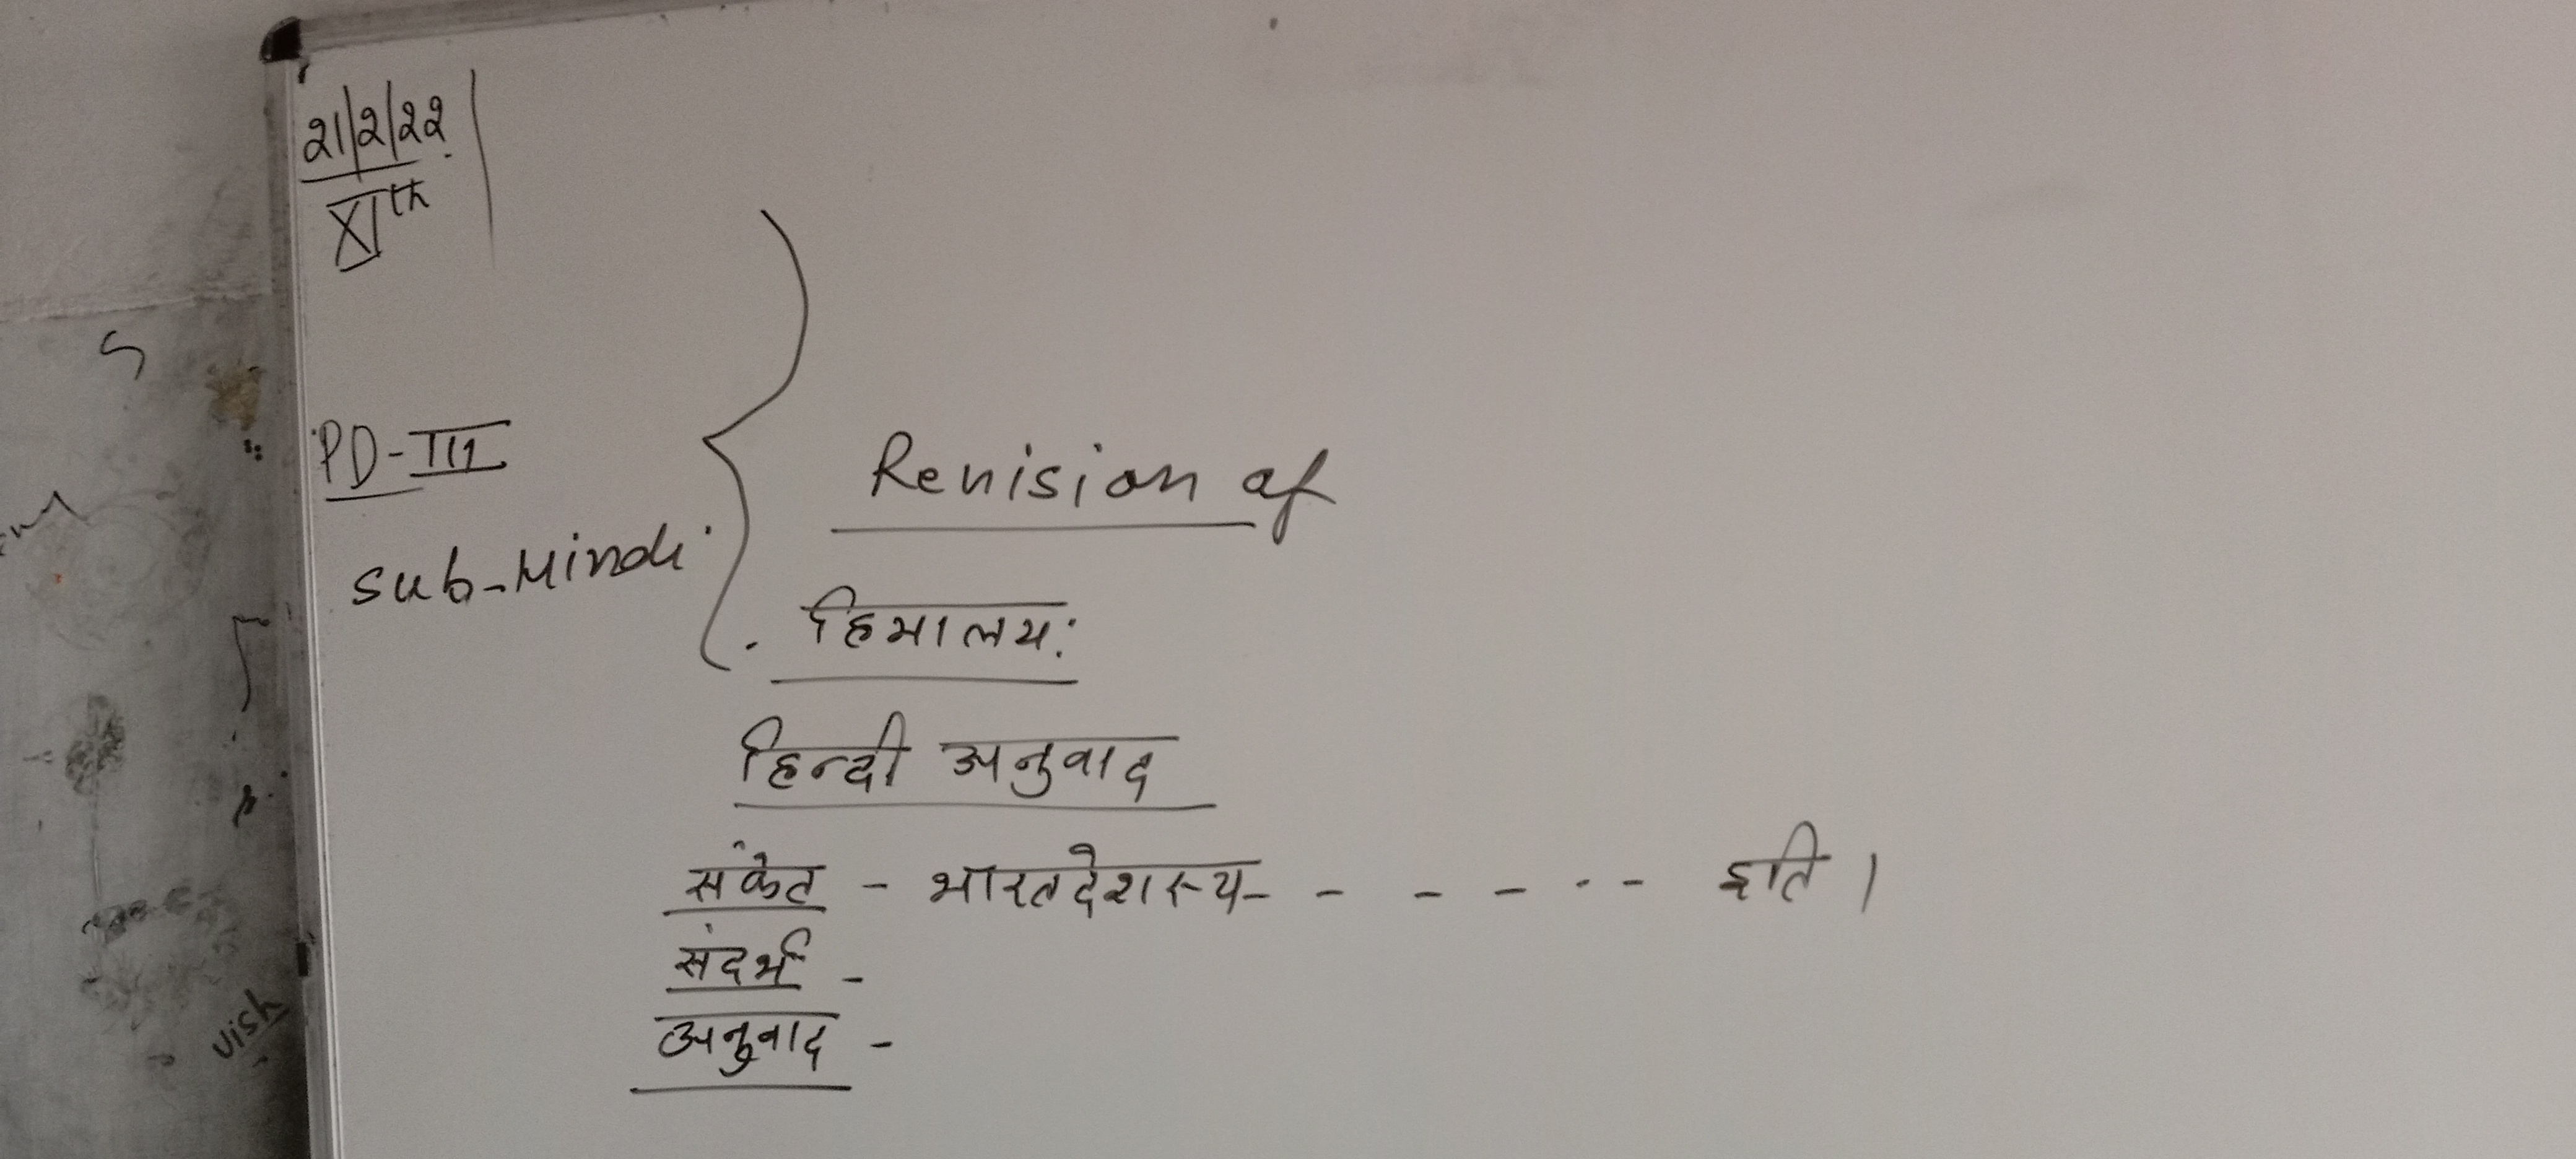 21/2/22
XIth
PD-III
Sub-Hindi
Revision of
हिमालय:
हिन्दी अनुवाद
संकेत - भारतदेशस्य- - - - - - - इति ।
संदर्भ -
अनुवाद -
Vish